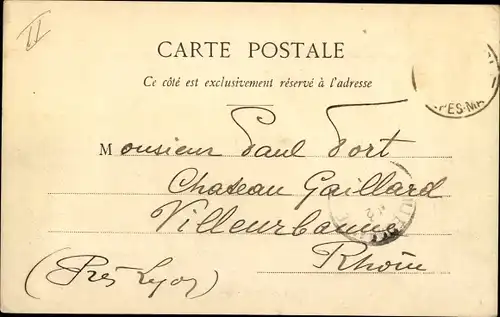 II
CARTE POSTALE
Ce côté est exclusivement réservé à l'adresse
PES-MA
Monsieur Paul Fort
Chateau Gaillard
Villeurbanne
Rhône
(Près Lyon)